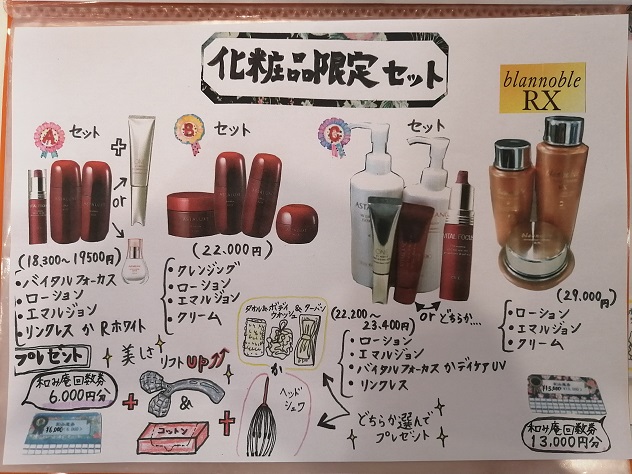 化粧品限定セット
blannoble
RX
A セット
B セット
C セット
or
(18.300～19500円)
・バイタルフォーカス
・ローション
・エマルジョン
・リンクレス か Rホワイト
(22.000円)
・クレンジング
・ローション
・エマルジョン
・クリーム
ASTA
VITAL FOCUS
or どちらか....
(22.200～
23.400円)
・ローション
・エマルジョン
・バイタルフォーカス か デイケアUV
・リンクレス
(29.000円)
・ローション
・エマルジョン
・クリーム
プレゼント
美しさリフトup↑↑
和み庵回数券
6.000円分
+
&
コットン
+
タオル&ボディ
ウォッシュ & ターバン
か
ヘッド
シュワ
どちらか選んで
プレゼント
和み庵回数券
13,000円分